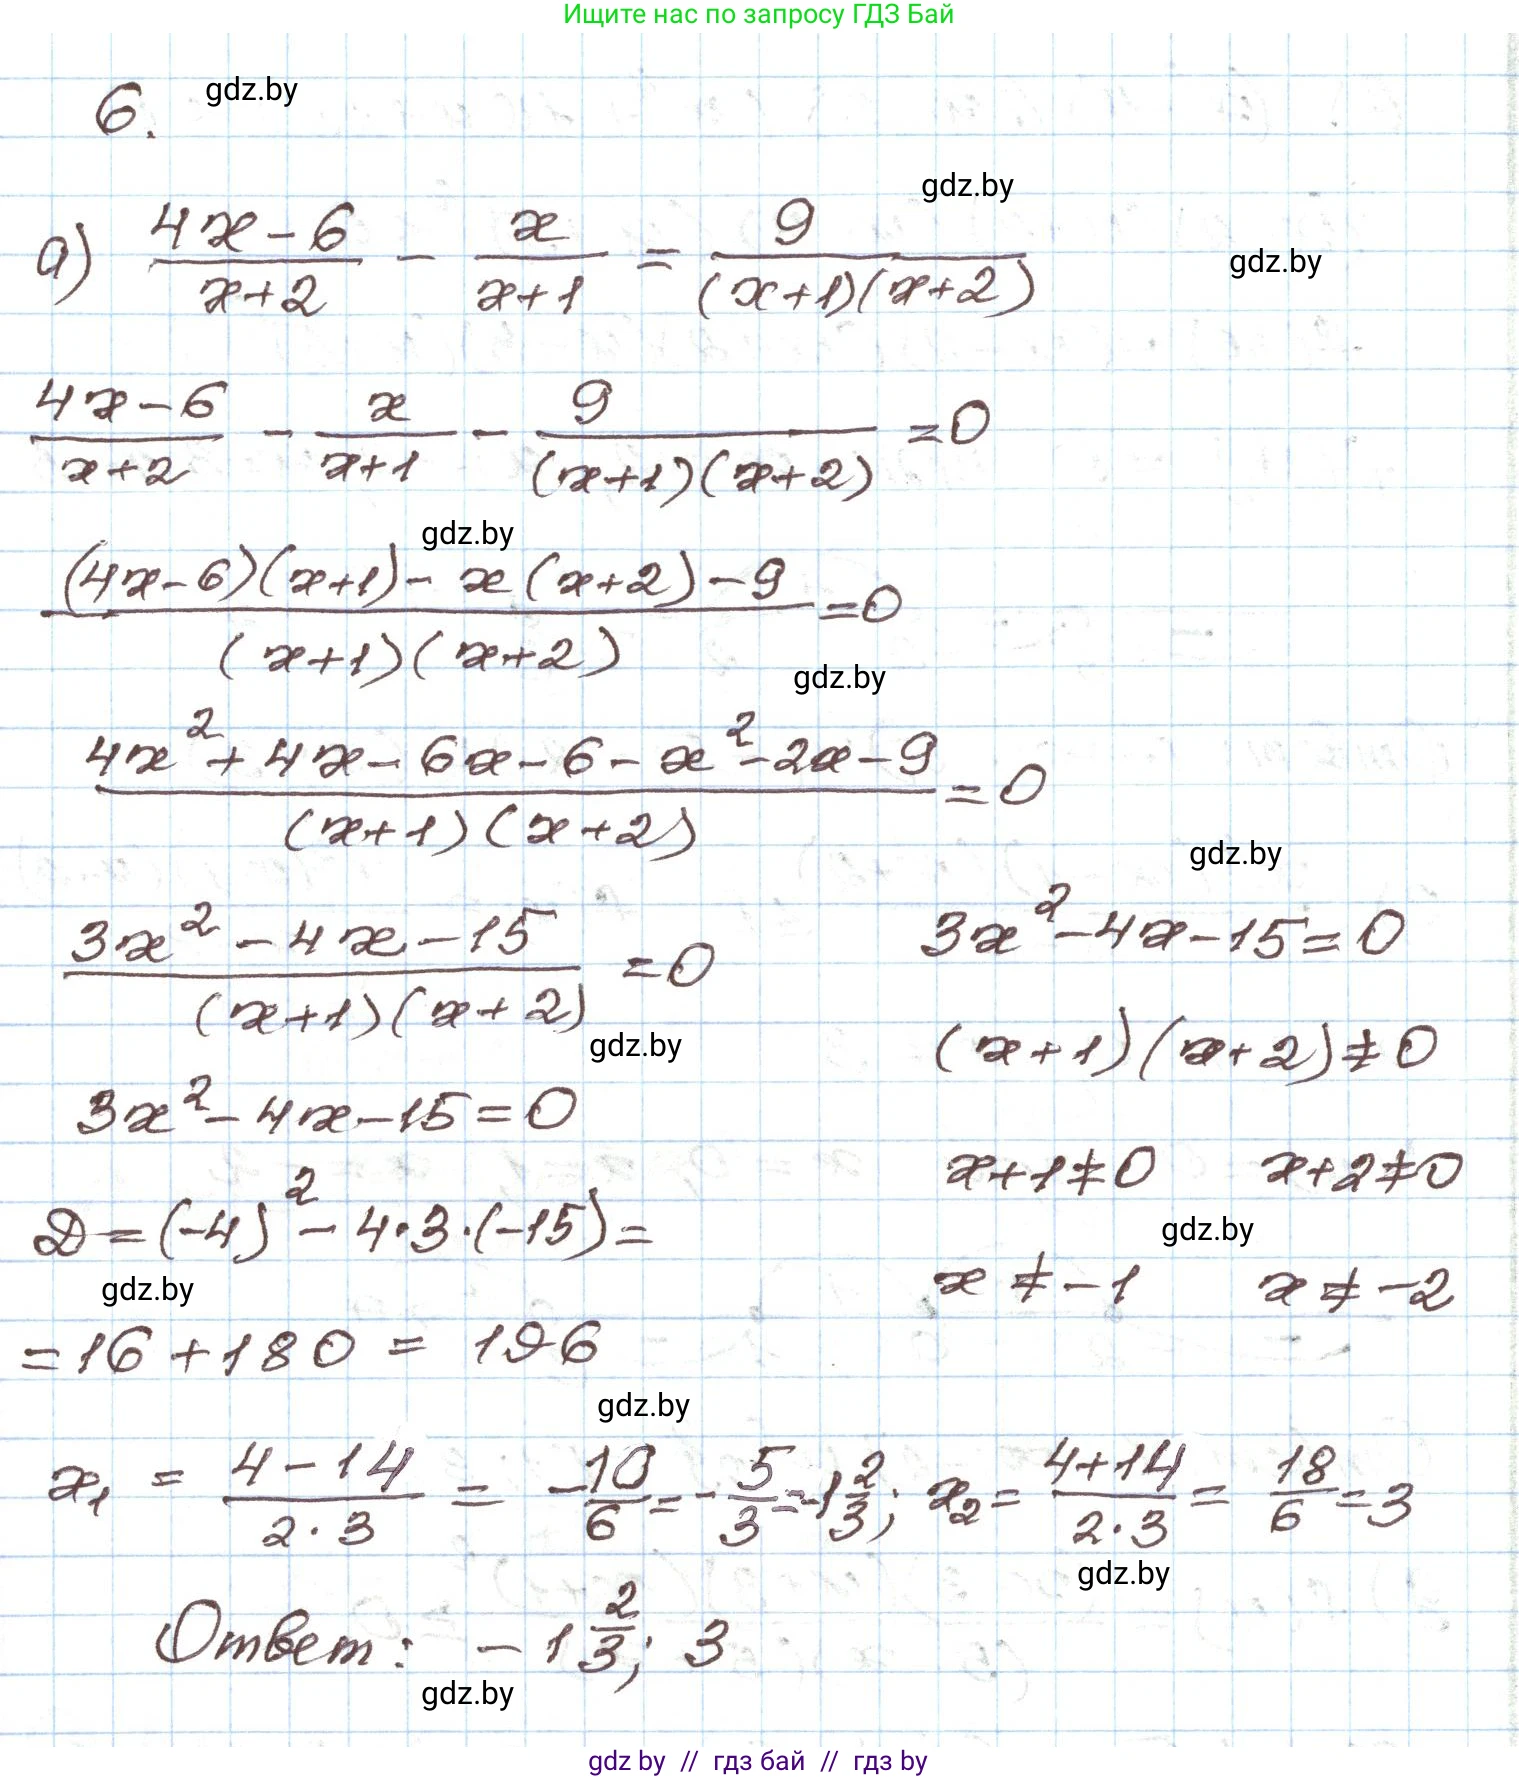 Ищите нас по запросу ГДЗ Бай
6. gdz.by
gdz.by
а) (4x-6)/(x+2) - x/(x+1) = 9/((x+1)(x+2)) gdz.by
(4x-6)/(x+2) - x/(x+1) - 9/((x+1)(x+2)) = 0
gdz.by
((4x-6)(x+1) - x(x+2) - 9)/((x+1)(x+2)) = 0
gdz.by
(4x² + 4x - 6x - 6 - x² - 2x - 9)/((x+1)(x+2)) = 0
gdz.by
(3x² - 4x - 15)/((x+1)(x+2)) = 0 3x² - 4x - 15 = 0
gdz.by (x+1)(x+2) ≠ 0
3x² - 4x - 15 = 0
x+1≠0 x+2≠0
D = (-4)² - 4·3·(-15) =
gdz.by
gdz.by
x ≠ -1 x ≠ -2
= 16 + 180 = 196
gdz.by
x₁ = (4-14)/(2·3) = -10/6 = -5/3 = -1 2/3; x₂ = (4+14)/(2·3) = 18/6 = 3
gdz.by
Ответ: -1 2/3; 3
gdz.by
gdz by // гдз бай // гдз by